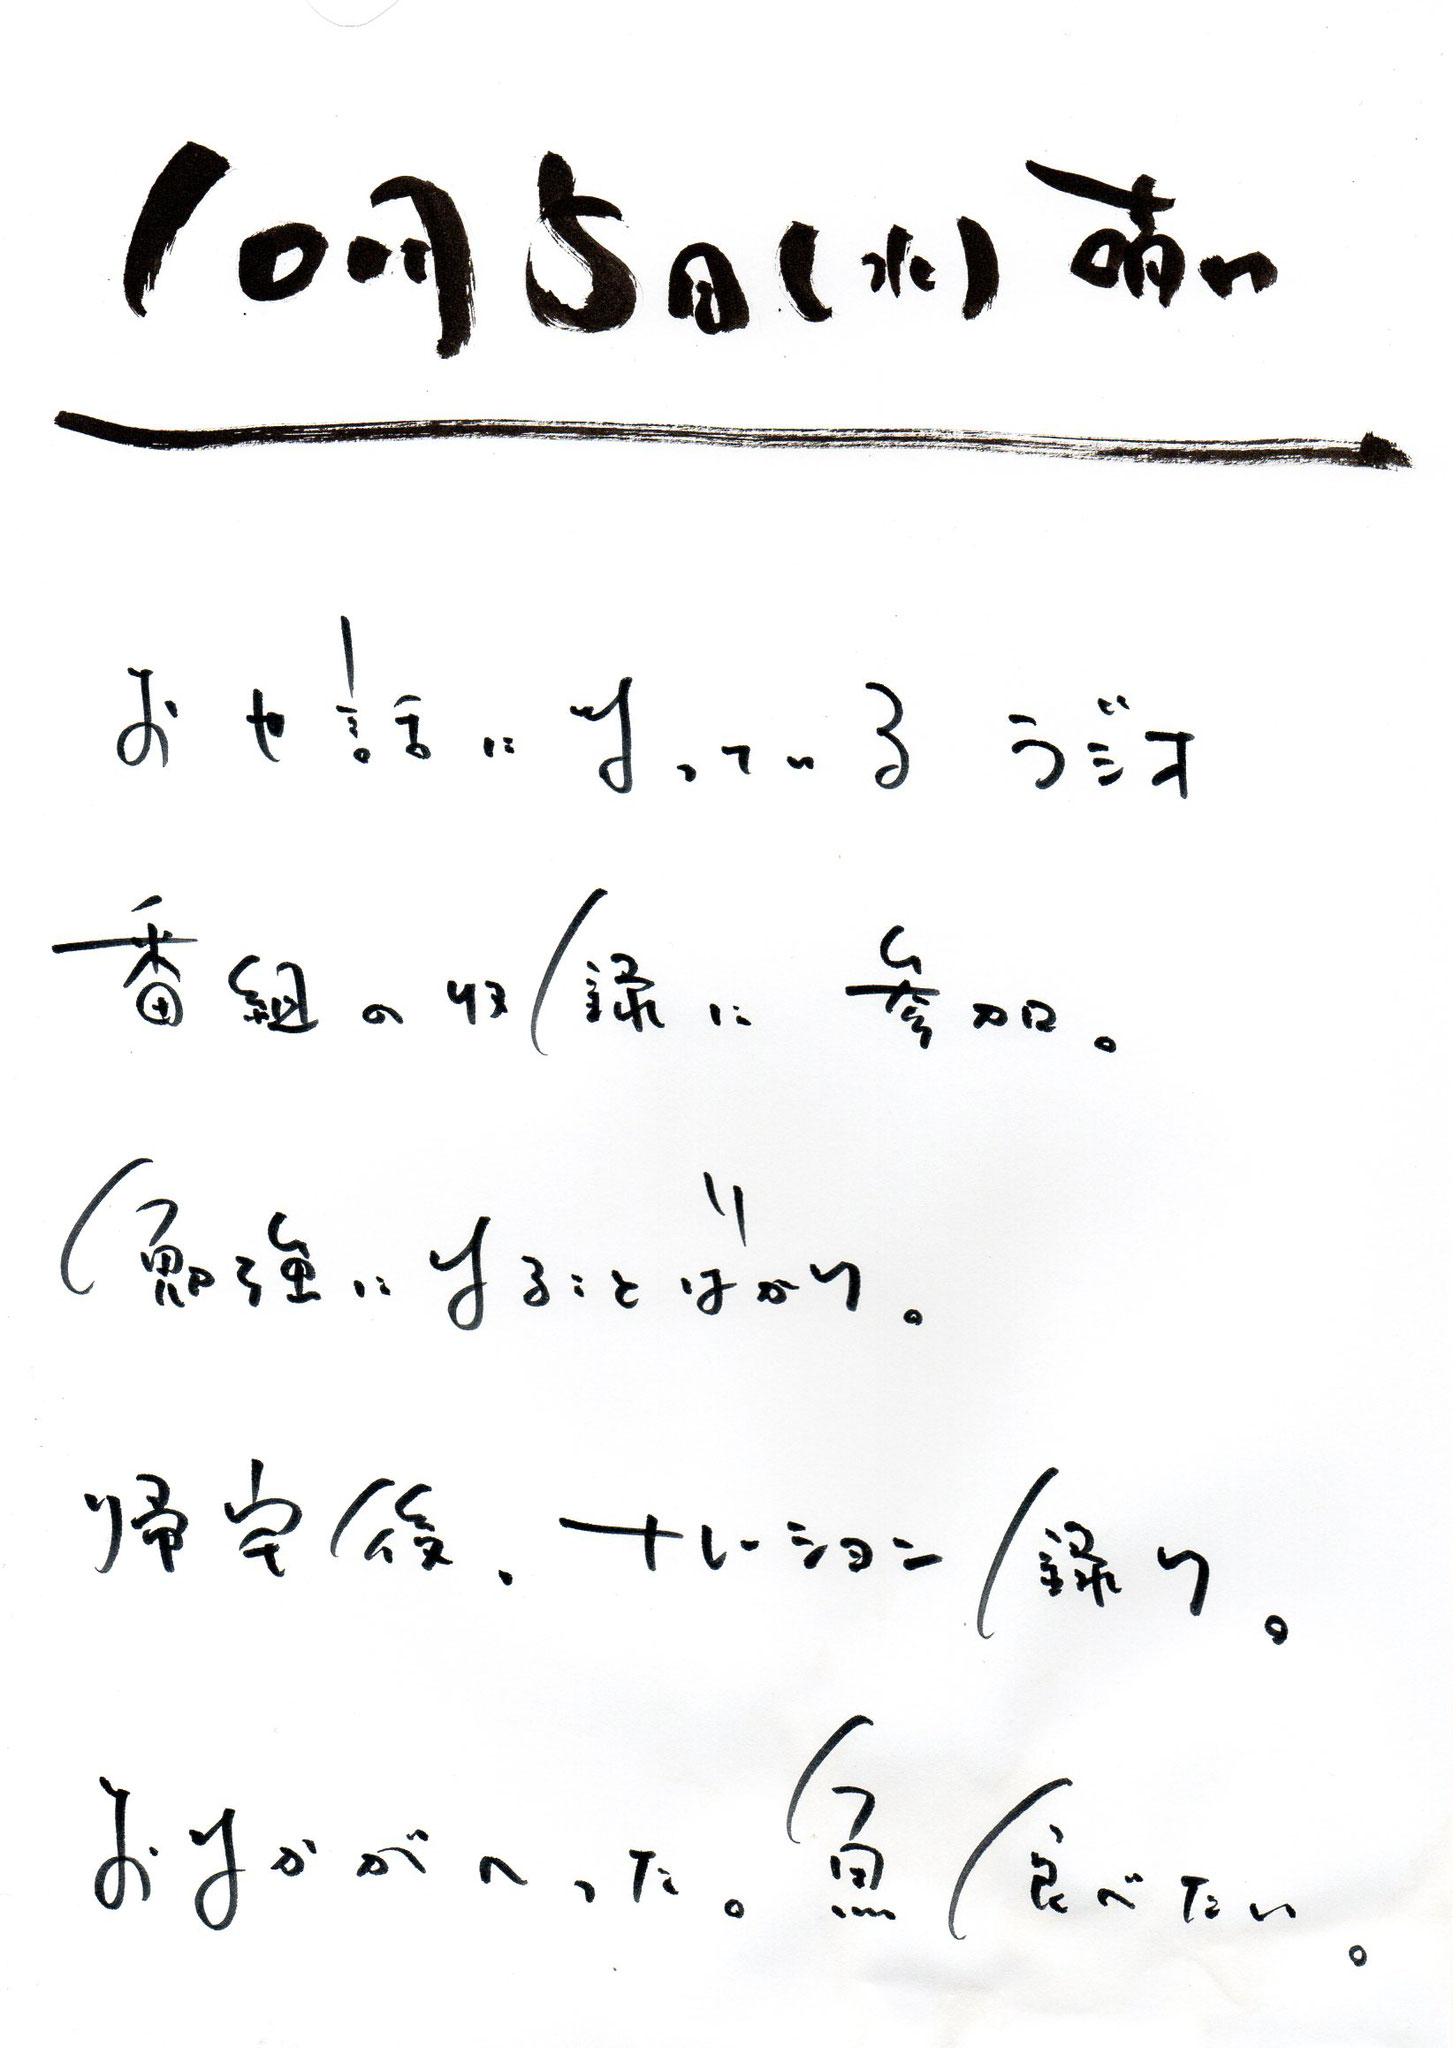 10月5日(水)
お世話になっているラジオ
番組の収録に参加。
勉強になることばかり。
帰宅後、ナレーション録り。
おなかがへった。魚食べたい。